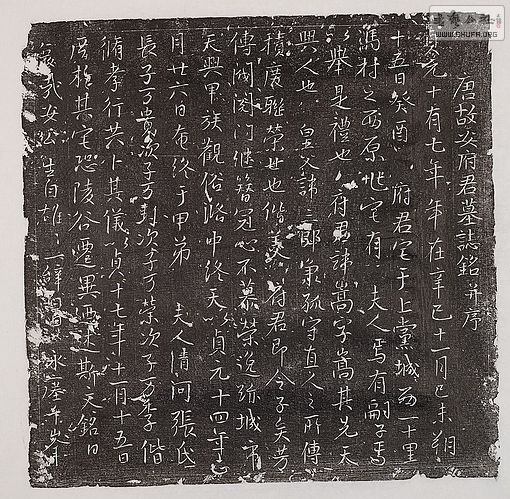 唐故安府君墓誌銘并序
貞元十有七年年在辛巳十一月己未朔
十五日癸酉府君宅于上黨城西一十里
馮村之西原世宅有夫人焉有嗣子焉
舉是禮也府君諱嵩字嵩其先天
興人也皇父諱三郎氣孤守直人之所傳
積慶雅榮世也府君即令子矣芳
傳閥閱門継簪冠心不慕榮逸跡城市
天興甲族觀俗潞中終天貞元十四年
月廿六日布終于甲第夫人清河張氏
長子万貴次子万封次子万榮次子万季偕
脩孝行共卜其儀以貞十七年十一月十五日
唐於其宅恐陵谷遷異迺述斯文銘曰
哉安公生自雄